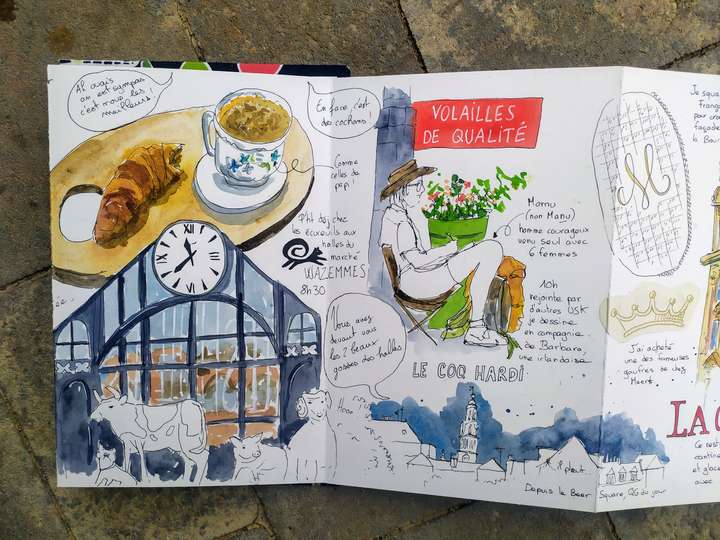 Ah ouais
on est sympas
c'est nous les
meilleurs!
En face, c'est
des cochons!
Comme
celles de
papi!
P'tit dej chez
les écureuils aux
halles du
marché
WAZEMMES
8h30
Vous avez
devant vous
les 2 beaux
gosses des halles
VOLAILLES
DE QUALITÉ
Mamu
(non Manu)
homme courageux
venu seul avec
6 femmes
10h
rejointe par
d'autres USK
je dessine
en compagnie
de Barbara,
une irlandaise
LE COQ HARDI
il pleut
Depuis le Beer Square, QG du jour
Je squa
Franç
pour cro
façade
la Bou
M
J'ai acheté
une des fameuses
gaufres de chez
Meert
LA C
Ce rest
cantine
et glac
avec